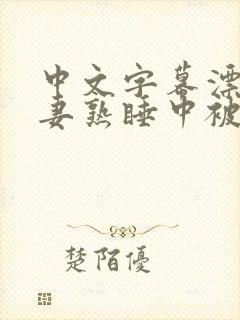 中文字幕漂
妻熟睡中被
楚陌優